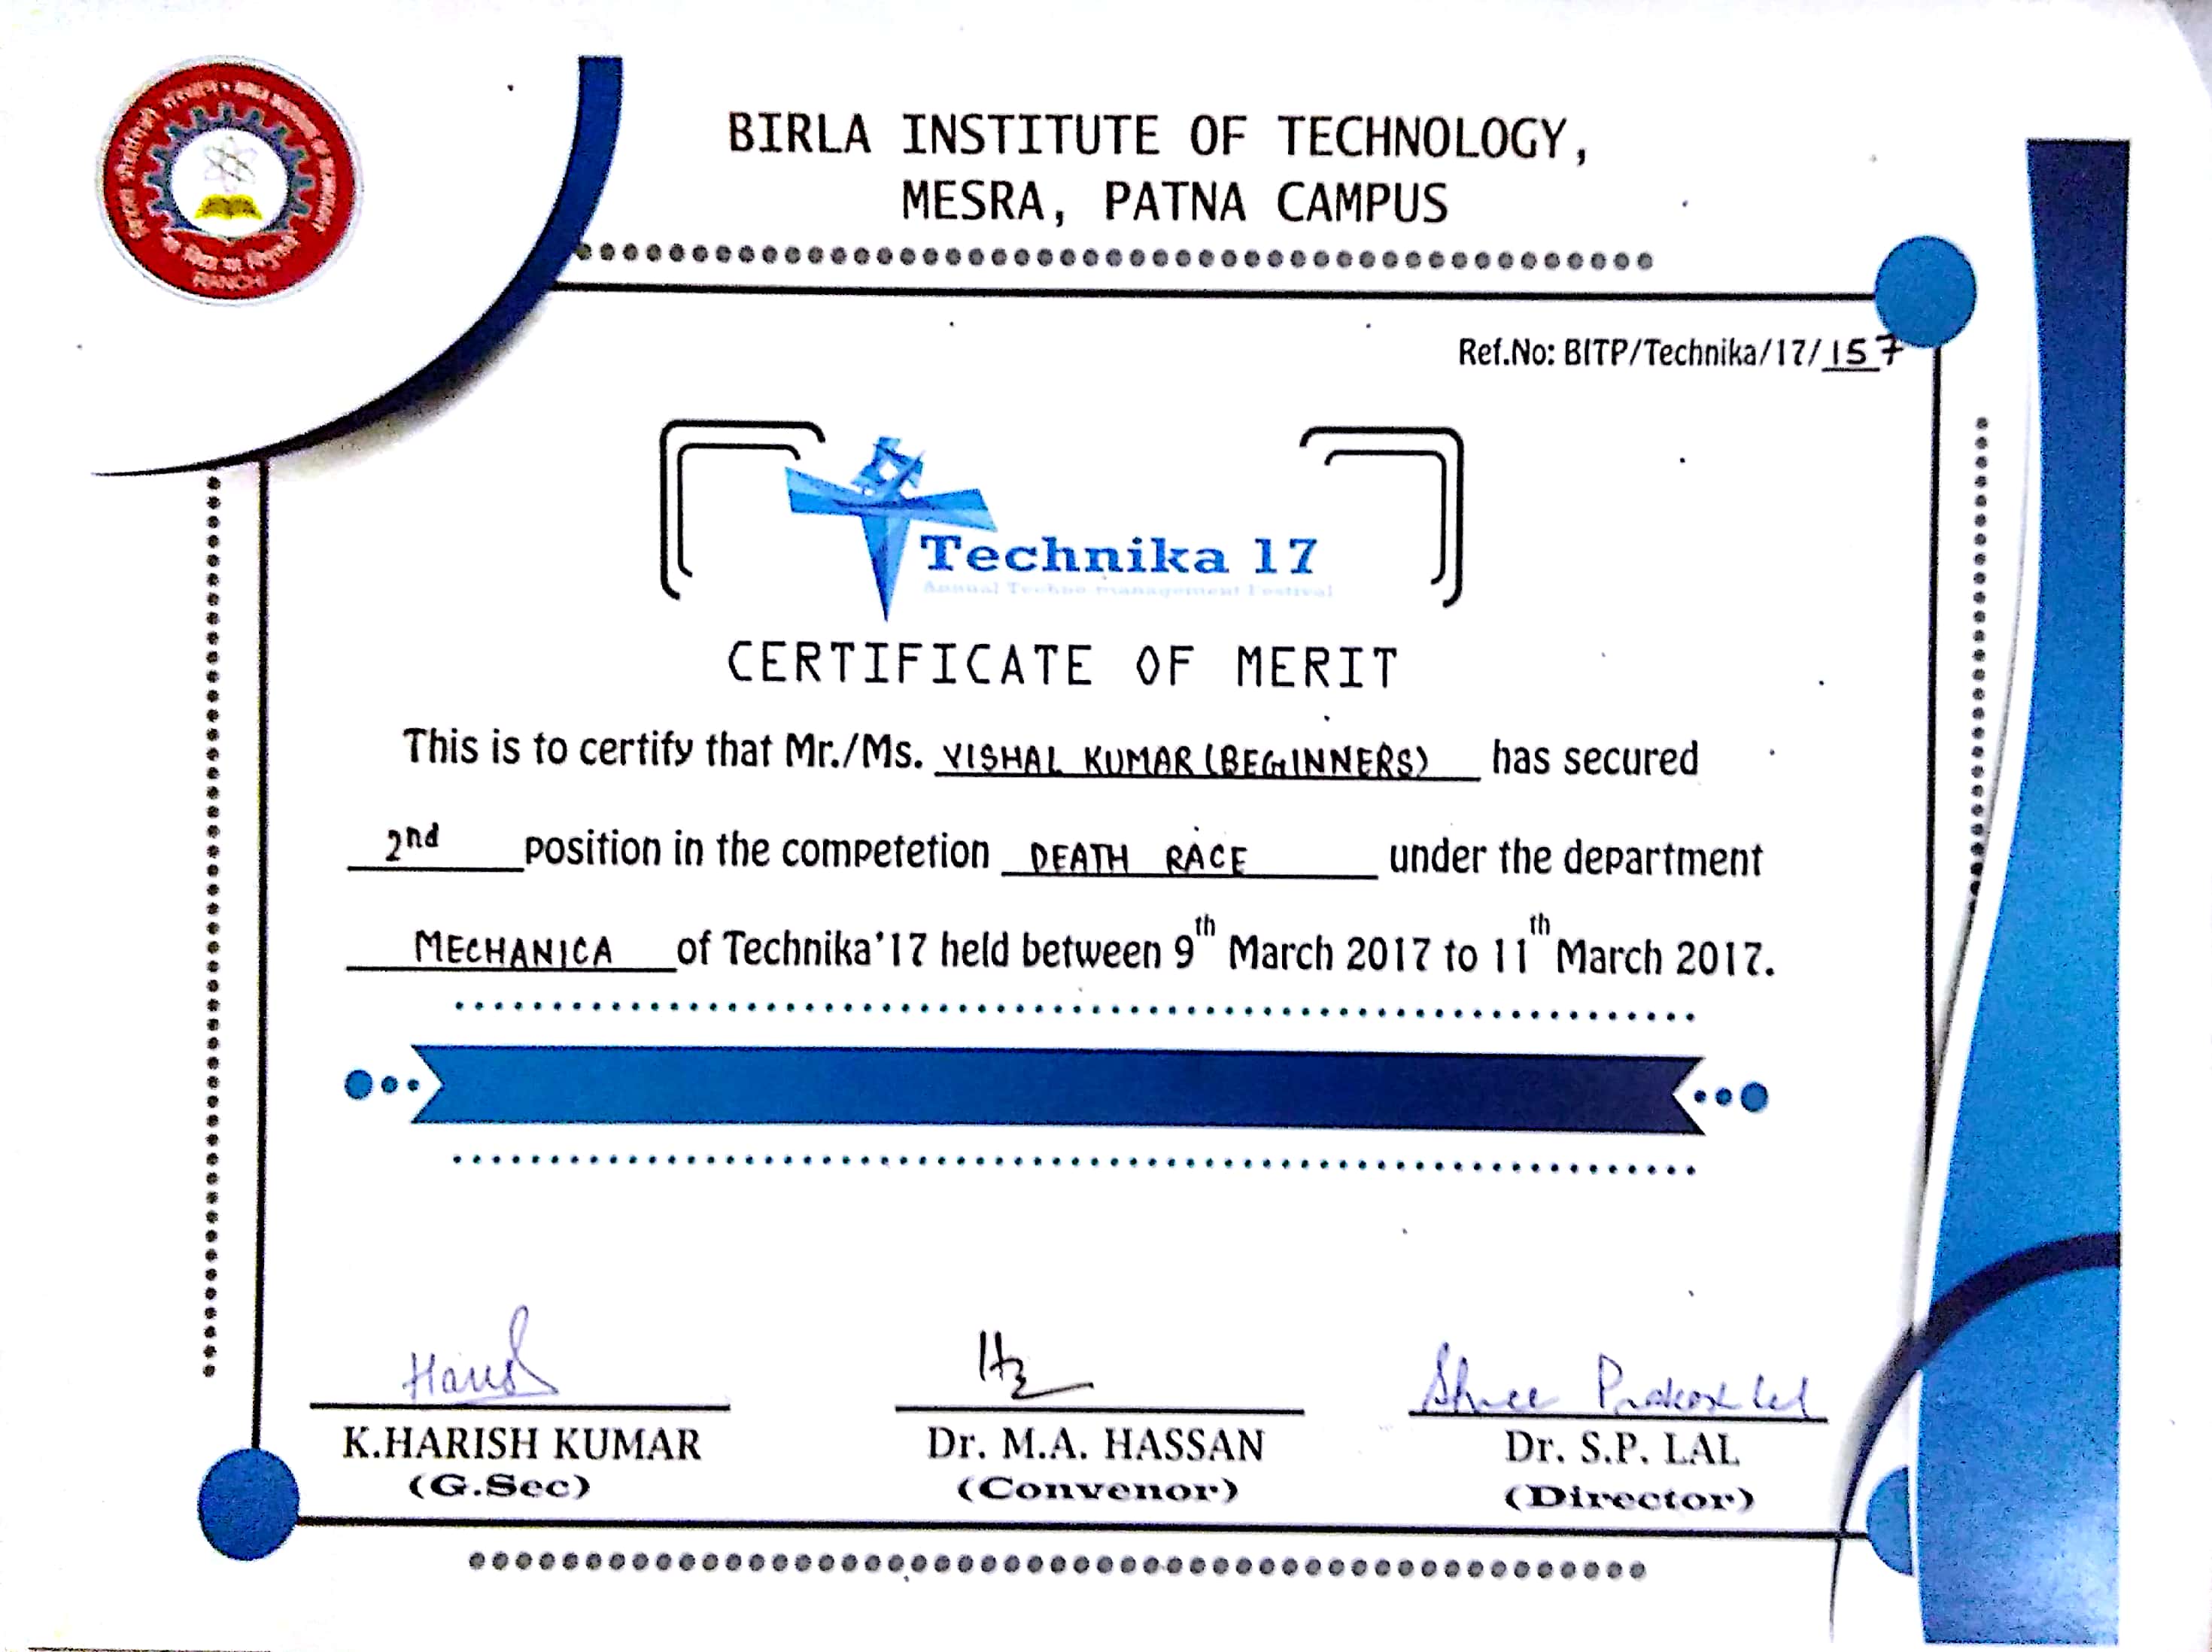 BIRLA INSTITUTE OF TECHNOLOGY,
MESRA, PATNA CAMPUS
RANCHI
Ref.No: BITP/Technika/17/157
Technika 17
Annual Techno management Festival
CERTIFICATE OF MERIT
This is to certify that Mr./Ms. VISHAL KUMAR (BEGINNERS) has secured
2nd position in the competetion DEATH RACE under the department
MECHANICA of Technika'17 held between 9th March 2017 to 11th March 2017.
Shree Prakash Lal
K.HARISH KUMAR Dr. M.A. HASSAN Dr. S.P. LAL
(G.Sec) (Convenor) (Director)